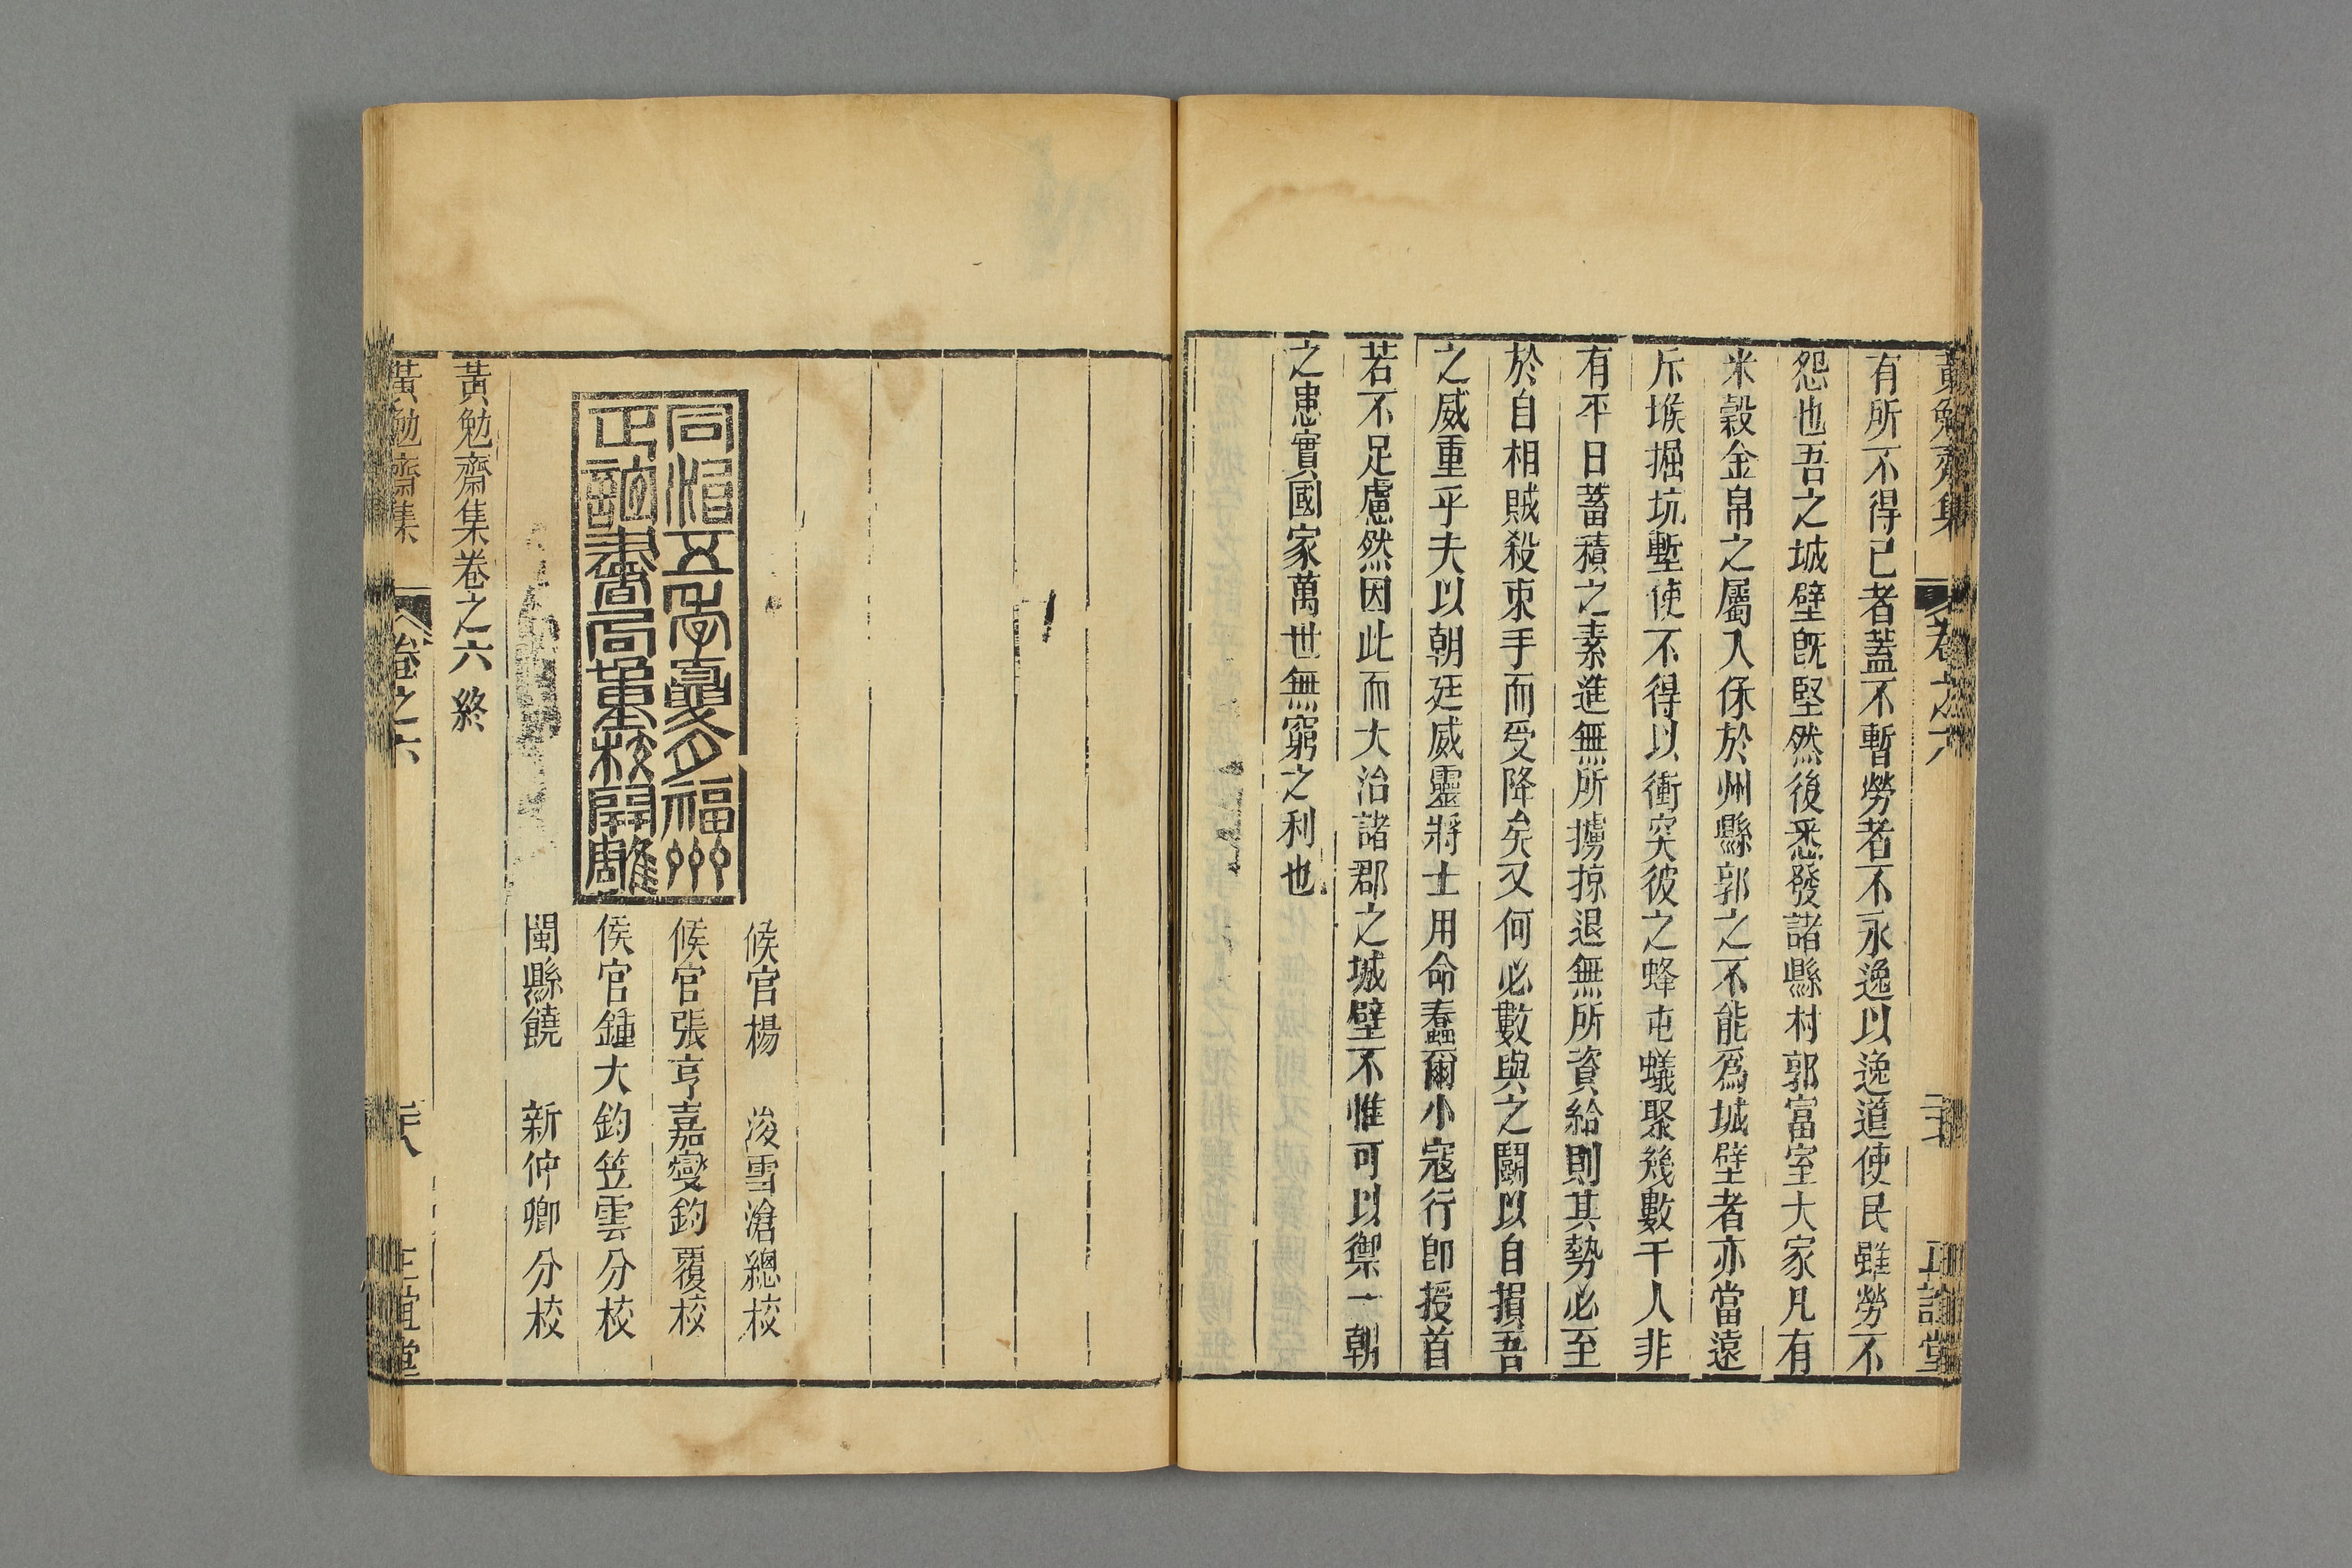 黃勉齋集 卷之六 正誼堂
有所不得已者蓋不暫勞者不永逸以逸道使民雖勞不
怨也吾之城壁旣堅然後悉發諸縣村郭富室大家凡有
米穀金帛之屬入保於州縣郭之不能爲城壁者亦當遠
斥堠掘坑塹使不得以衝突彼之蜂屯蟻聚幾數千人非
有平日蓄積之素進無所擄掠退無所資給則其勢必至
於自相賊殺束手而受降矣又何必數與之鬬以自損吾
之威重乎夫以朝廷威靈將士用命蠢爾小寇行卽授首
若不足慮然因此而大治諸郡之城壁不惟可以禦一朝
之患實國家萬世無窮之利也
候官楊 浚雪滄總校
候官張亨嘉燮鈞覆校
同治五年夏月福州
正誼書局重校開雕
侯官鍾大鈞笠雲分校
閩縣饒 新仲卿分校
黃勉齋集卷之六 終
黃勉齋集 卷之六 正誼堂